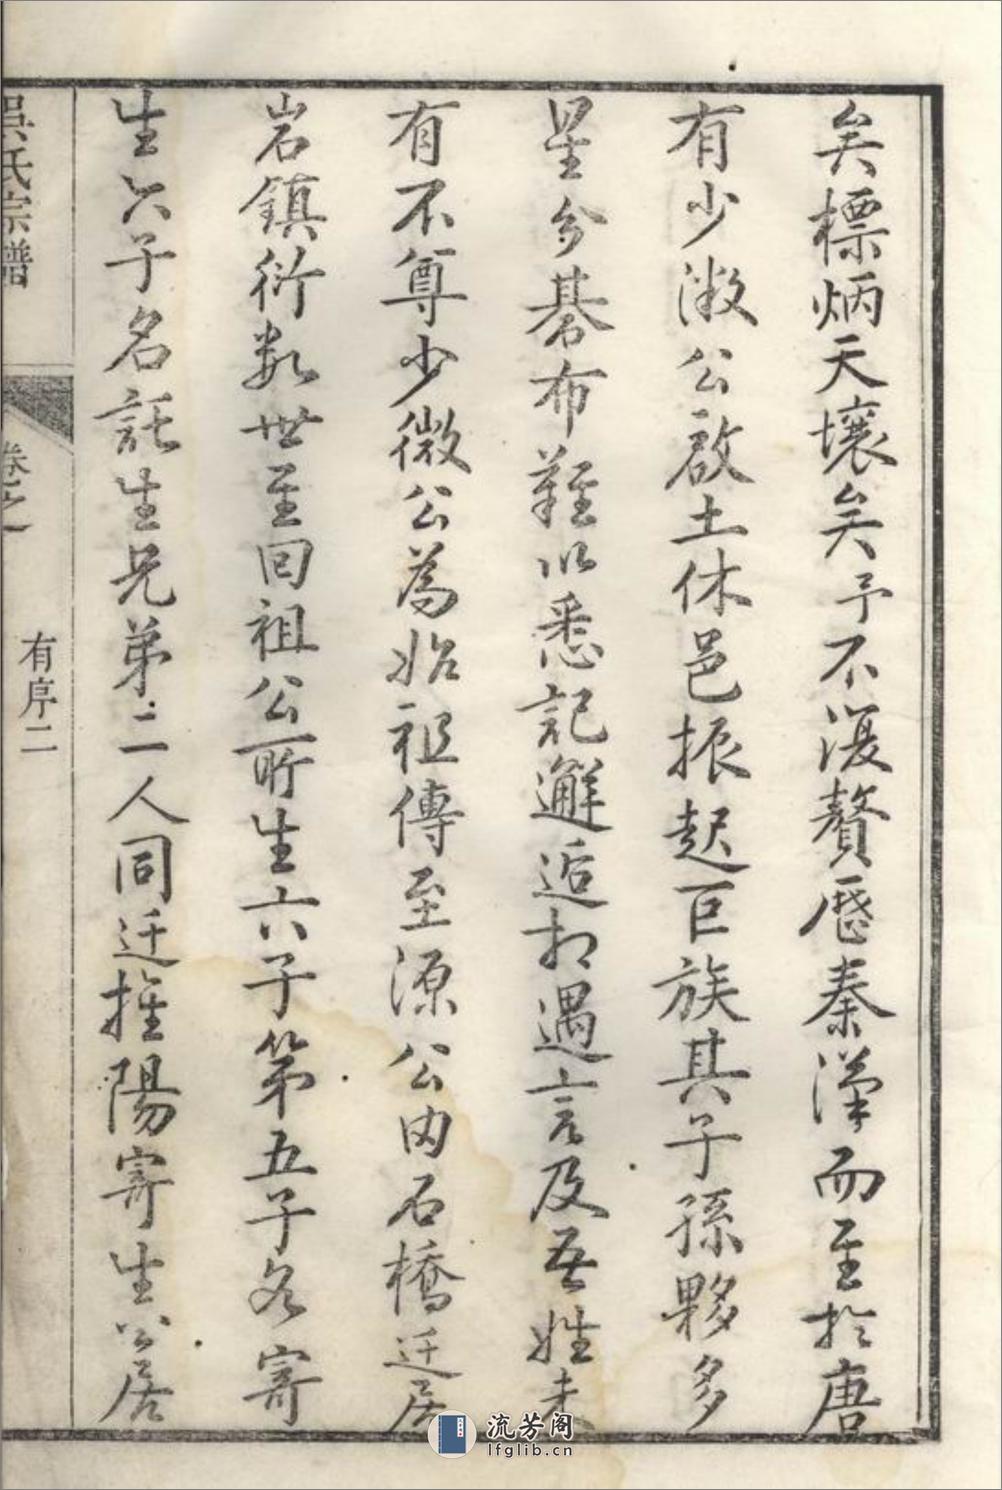 矣標炳天壤矣予不復贅歷秦漢而至於唐
有少微公啟土休邑振起巨族其子孫夥多
星分碁布難以悉記邂逅相遇言及吾姓未
有不尊少微公為始祖傳至源公內石橋迁居
岩鎮衍数世至回祖公所生六子第五子名寄
生六子名託生兄弟二人同迁摧陽寄生公居
吳氏宗譜
卷之
有序二
流芳阁
lfglib.cn